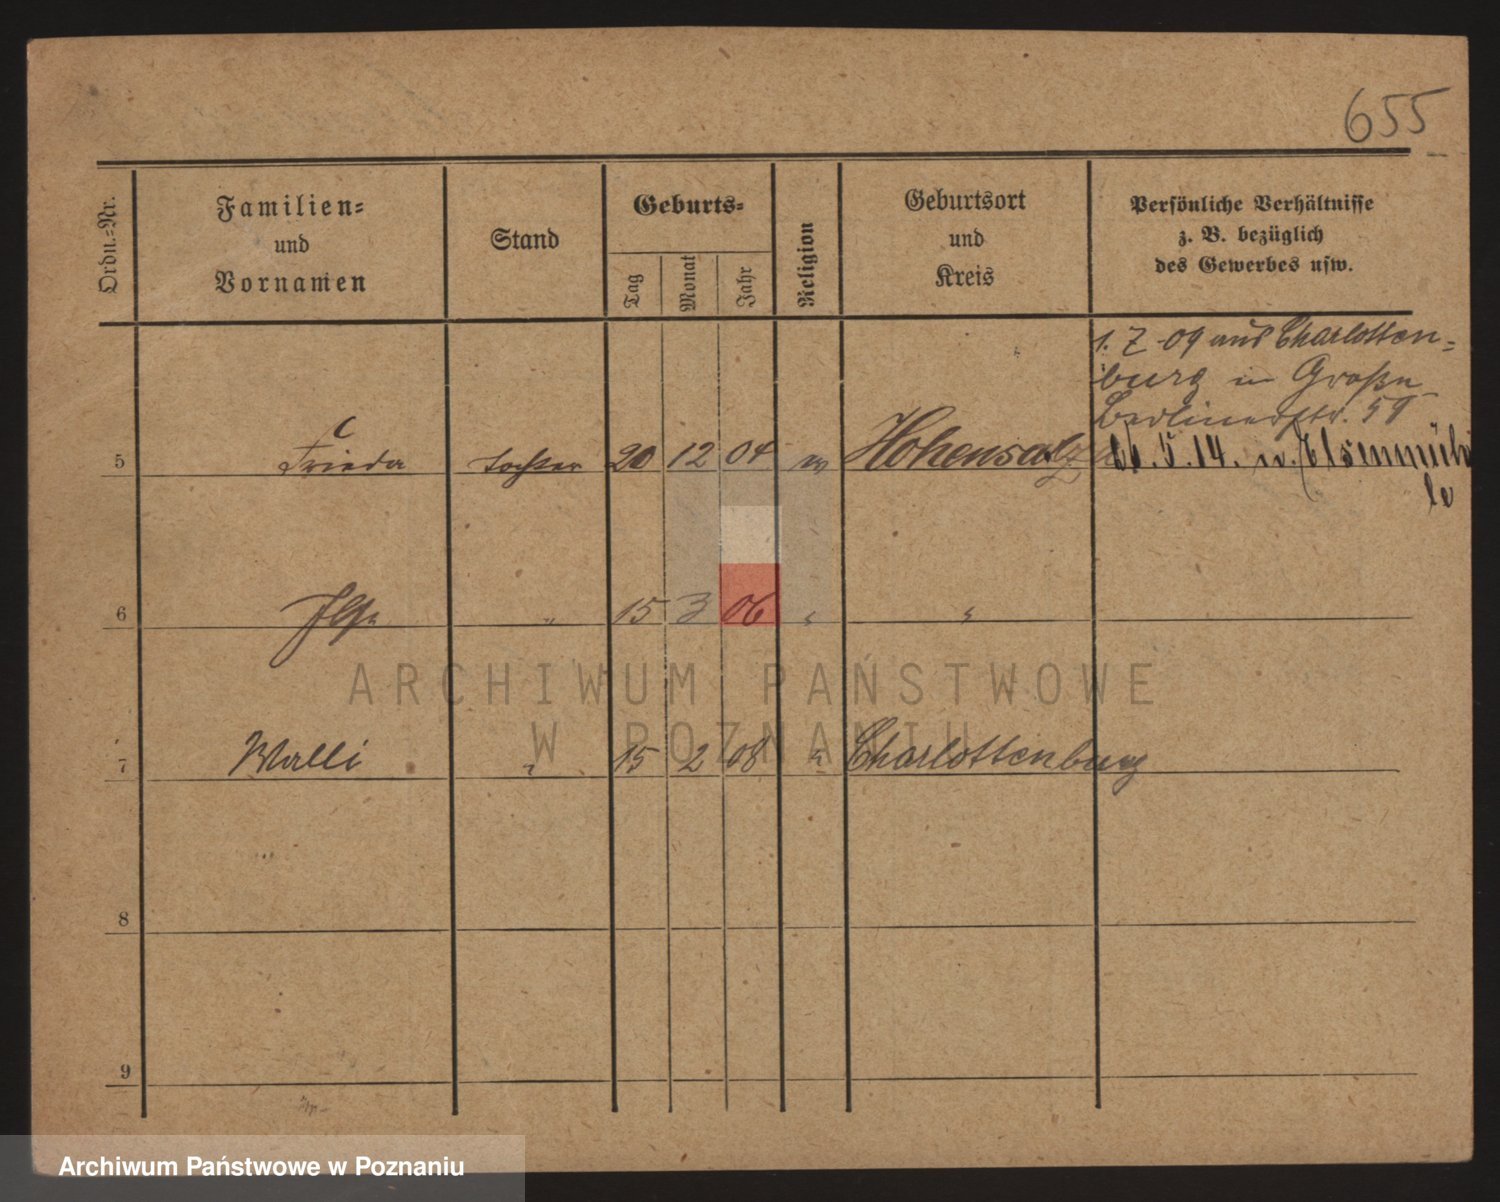 655
Ordn.-Nr.
Familien-
und
Vornamen
Stand
Geburts-
Tag
Monat
Jahr
Religion
Geburtsort
und
Kreis
Persönliche Verhältnisse
z. B. bezüglich
des Gewerbes usw.
1. 7. 09 aus Charlotten-
burg in Große
Berlinerstr. 59
5 Frieda Tochter 20 12 04 Hohensalza
26.5.14. n. Elsenmüh
le
6 Ilse " 15 3 06 " "
7 Walli " 15 2 08 " Charlottenburg
8
9
ARCHIWUM PAŃSTWOWE
W POZNANIU
Archiwum Państwowe w Poznaniu